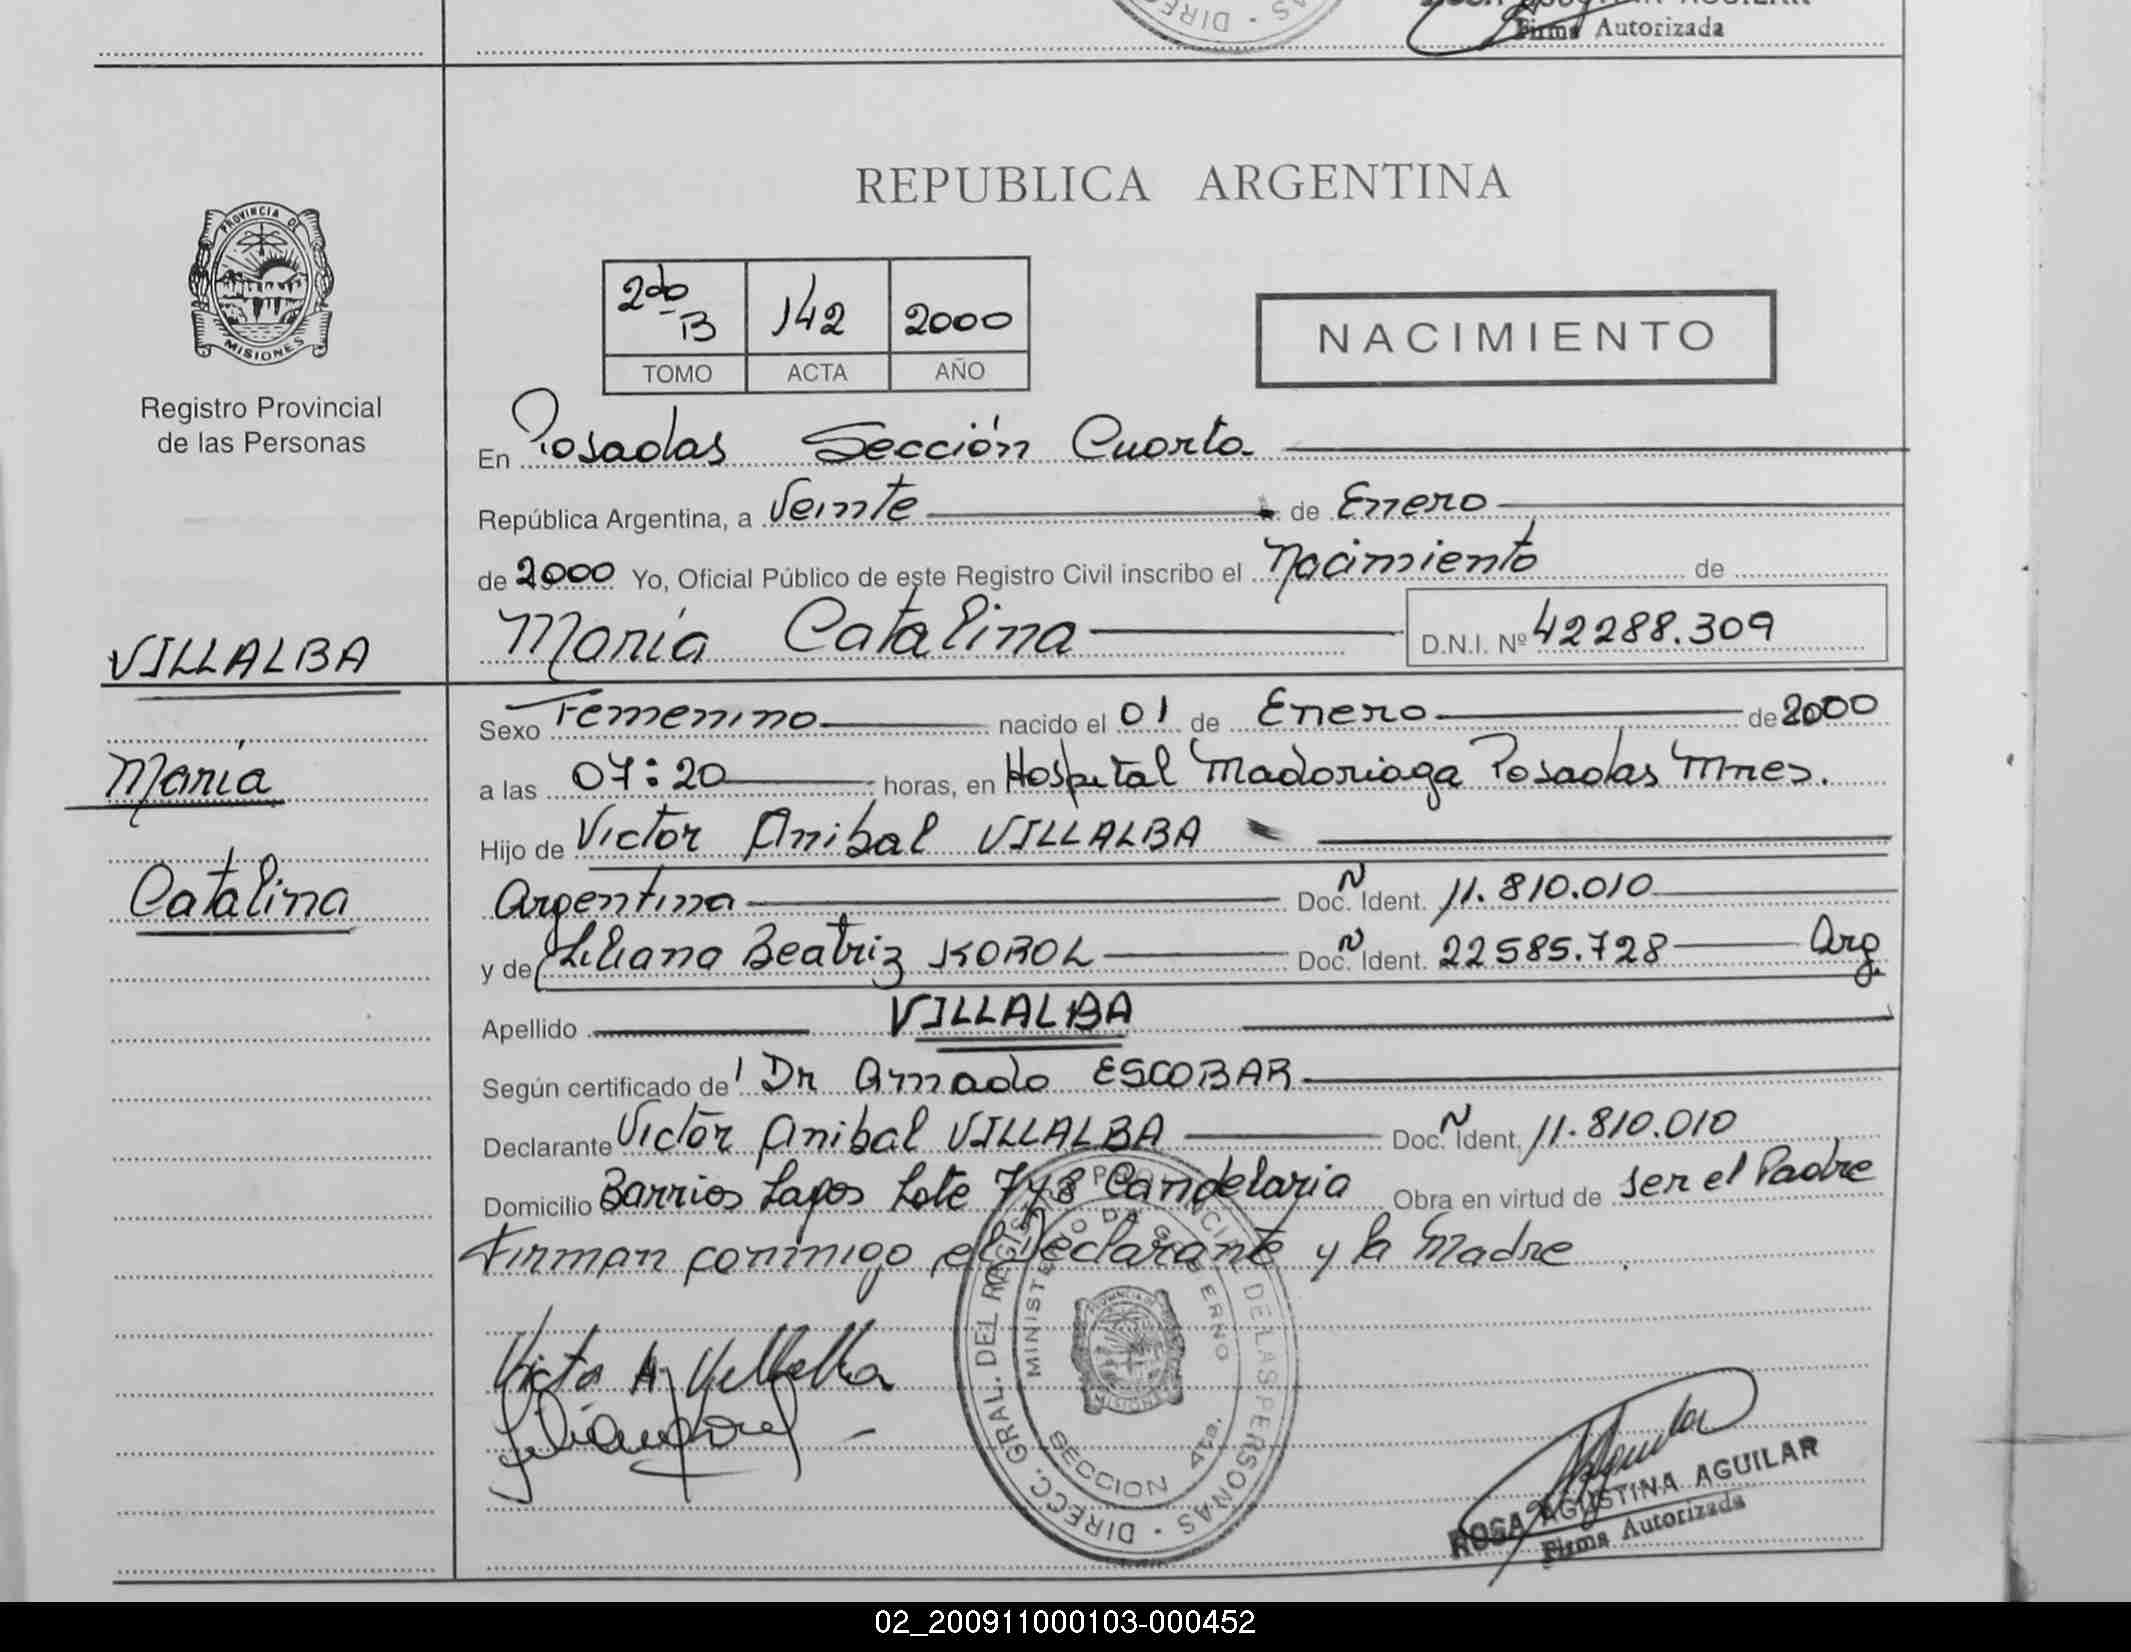 Firma Autorizada
PROVINCIA DE
MISIONES
Registro Provincial
de las Personas
REPUBLICA ARGENTINA
2do B 142 2000
TOMO ACTA AÑO
NACIMIENTO
En Posadas Sección Cuarta
República Argentina, a Veinte de Enero
de 2000 Yo, Oficial Público de este Registro Civil inscribo el Nacimiento de
María Catalina D.N.I. Nº 42288.309
VILLALBA
María
Catalina
Sexo Femenino nacido el 01 de Enero de 2000
a las 07:20 horas, en Hospital Madariaga Posadas Mnes.
Hijo de Victor Anibal VILLALBA
Argentina Doc. N Ident. 11.810.010
y de Liliana Beatriz KOROL Doc. N Ident. 22585.728 Arg.
Apellido VILLALBA
Según certificado de Dr Amado ESCOBAR
Declarante Victor Anibal VILLALBA Doc. N Ident. 11.810.010
Domicilio Barrios Lapos Lote 7y8 Candelaria Obra en virtud de ser el Padre
Firman conmigo el Declarante y la Madre
Victo A. Villalba
DIRECC. GRAL. DEL REGISTRO PROVINCIAL DE LAS PERSONAS
MINISTERIO DE GOBIERNO
SECCION 4ta.
ROSA AGUSTINA AGUILAR
Firma Autorizada
02_200911000103-000452